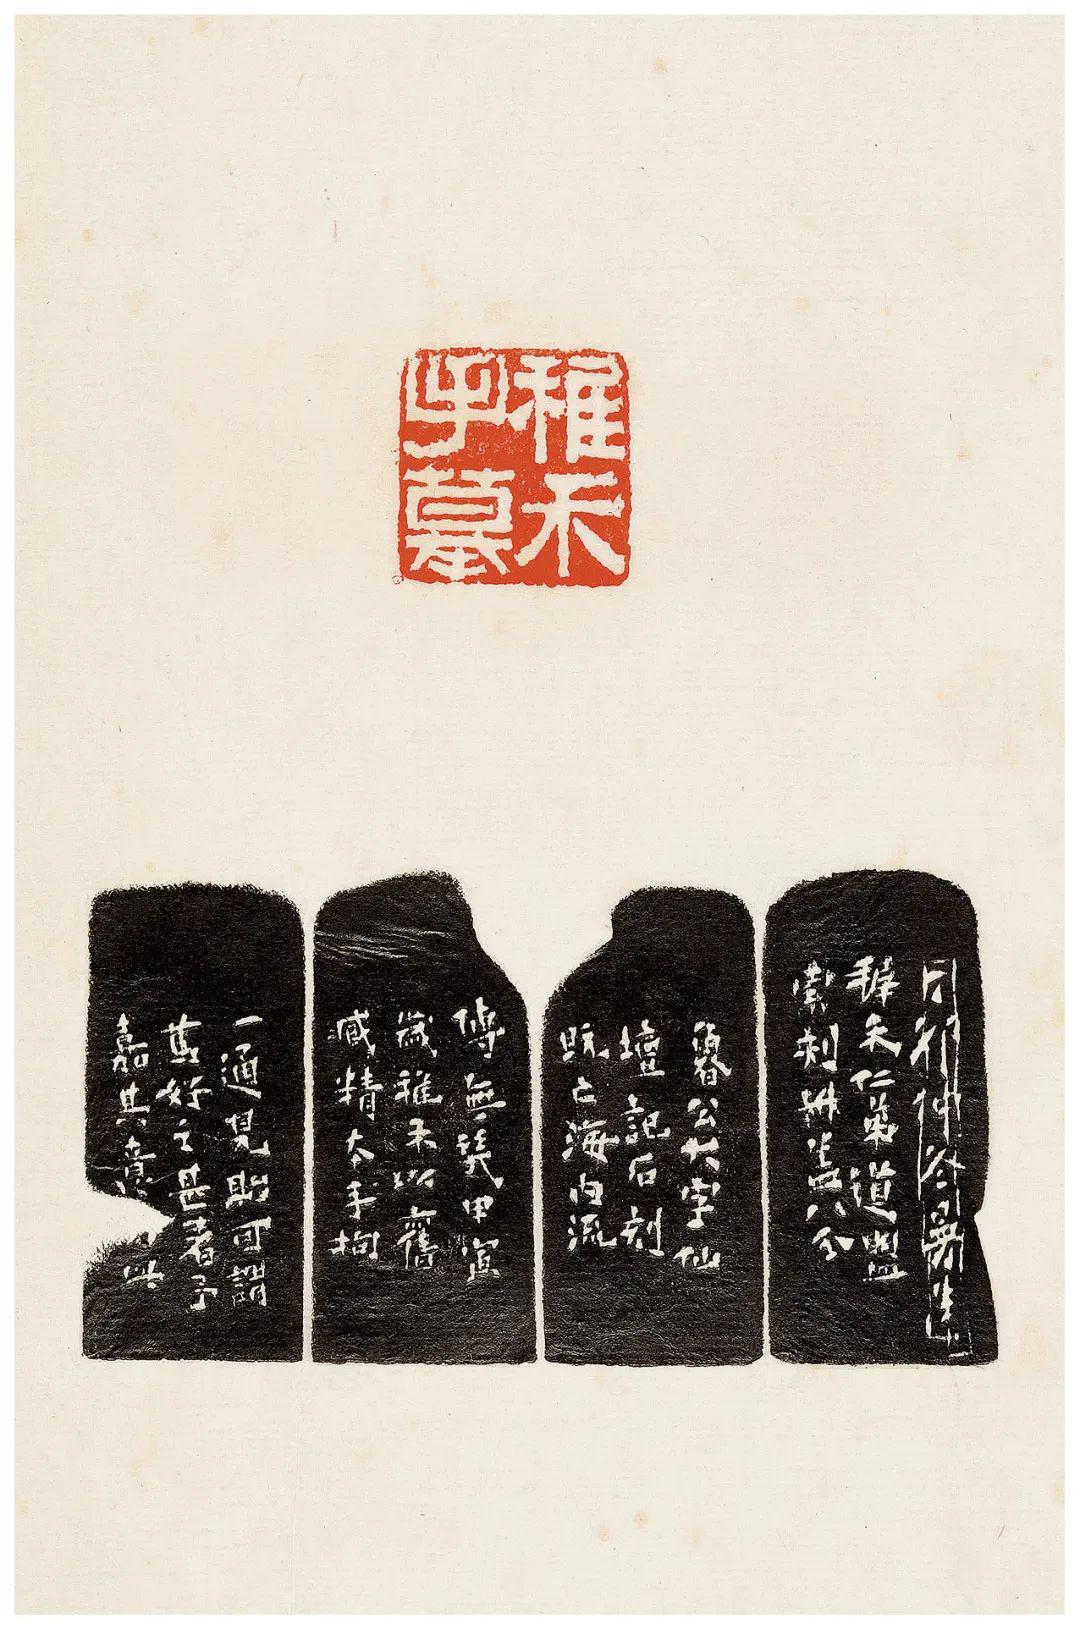 稚禾
手摹
稺禾仁弟道盟
索刻
八分
魯公大字仙
壇記石刻
既亡海内流
傳無幾甲寅
歲稚禾以舊
臧精本手拘
一通見貽可謂
好之甚者予
嘉其意